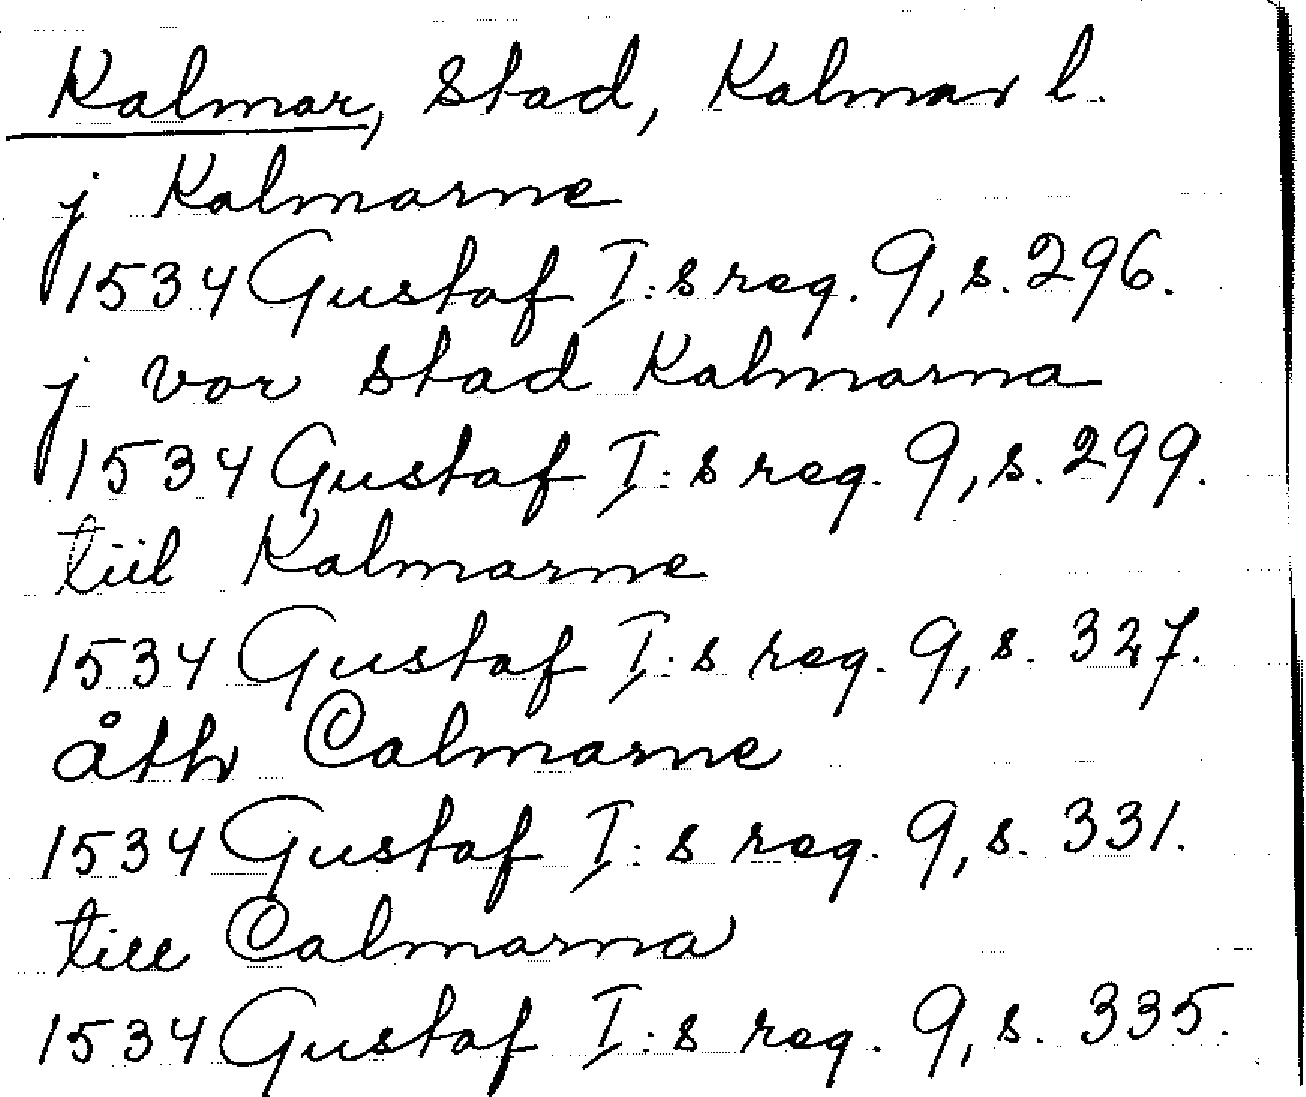 Kalmar, stad, Kalmar l.
j Kalmarne
1534 Gustaf I:s reg. 9, s. 296.
j vor stad Kalmarna
1534 Gustaf I:s reg. 9, s. 299.
tiil Kalmarne
1534 Gustaf I:s reg. 9, s. 327.
åth Calmarne
1534 Gustaf I:s reg. 9, s. 331.
till Calmarna
1534 Gustaf I:s reg. 9, s. 335.